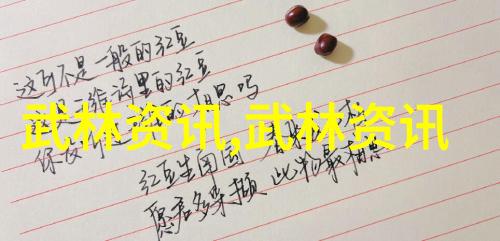 这可不是一般的红豆
海里的红豆
相思吗
武林资讯,武林资讯
红豆生南国 春来
愿君多采撷 此物最相思